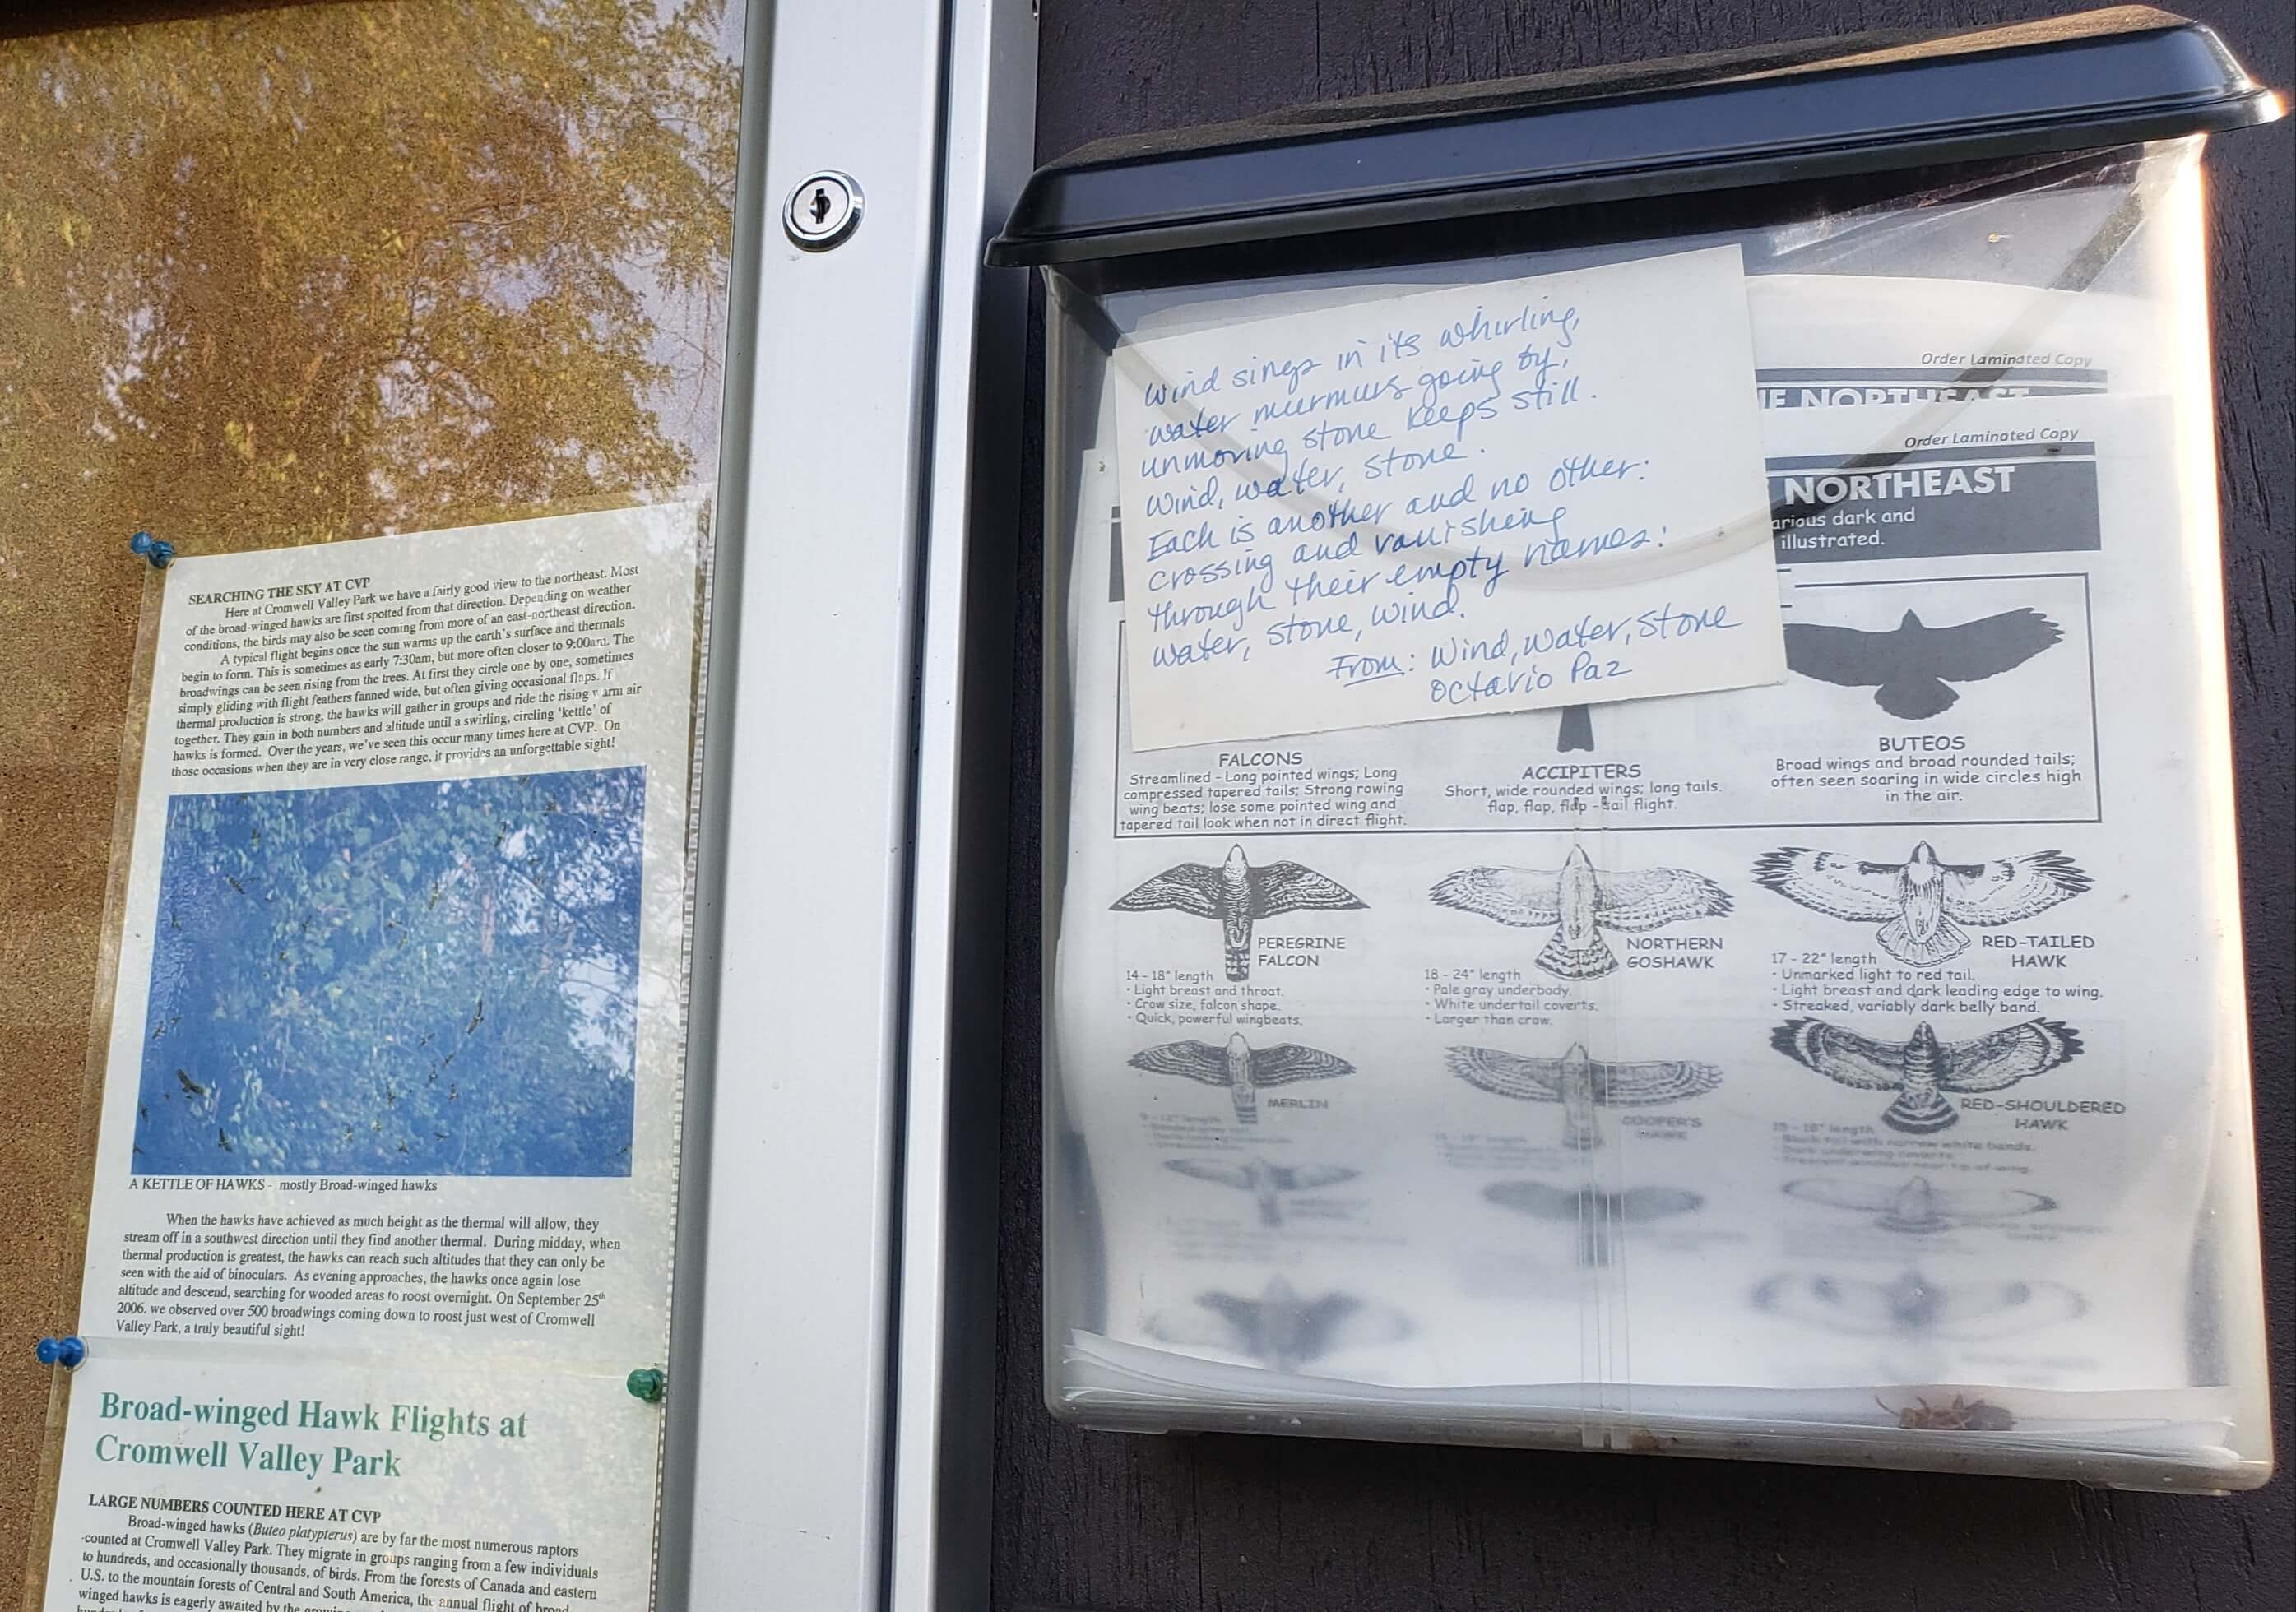 SEARCHING THE SKY AT CVP
Here at Cromwell Valley Park we have a fairly good view to the northeast. Most
of the broad-winged hawks are first spotted from that direction. Depending on weather
conditions, the birds may also be seen coming from more of an east-northeast direction.
A typical flight begins once the sun warms up the earth's surface and thermals
begin to form. This is sometimes as early 7:30am, but more often closer to 9:00am. The
broadwings can be seen rising from the trees. At first they circle one by one, sometimes
simply gliding with flight feathers fanned wide, but often giving occasional flaps. If
thermal production is strong, the hawks will gather in groups and ride the rising warm air
together. They gain in both numbers and altitude until a swirling, circling 'kettle' of
hawks is formed. Over the years, we've seen this occur many times here at CVP. On
those occasions when they are in very close range, it provides an unforgettable sight!
A KETTLE OF HAWKS - mostly Broad-winged hawks
When the hawks have achieved as much height as the thermal will allow, they
stream off in a southwest direction until they find another thermal. During midday, when
thermal production is greatest, the hawks can reach such altitudes that they can only be
seen with the aid of binoculars. As evening approaches, the hawks once again lose
altitude and descend, searching for wooded areas to roost overnight. On September 25th
2006. we observed over 500 broadwings coming down to roost just west of Cromwell
Valley Park, a truly beautiful sight!
Broad-winged Hawk Flights at
Cromwell Valley Park
LARGE NUMBERS COUNTED HERE AT CVP
Broad-winged hawks (Buteo platypterus) are by far the most numerous raptors
counted at Cromwell Valley Park. They migrate in groups ranging from a few individuals
to hundreds, and occasionally thousands, of birds. From the forests of Canada and eastern
U.S. to the mountain forests of Central and South America, the annual flight of broad-
winged hawks is eagerly awaited by the
Wind sings in its whirling,
water murmurs going by,
unmoving stone keeps still.
Wind, water, stone.
Each is another and no other:
crossing and vanishing
through their empty names:
water, stone, wind.
From: Wind, Water, Stone
Octavio Paz
Order Laminated Copy
NORTHEAST
Order Laminated Copy
NORTHEAST
dark and
illustrated.
FALCONS
Streamlined - Long pointed wings; Long
compressed tapered tails; Strong rowing
wing beats; lose some pointed wing and
tapered tail look when not in direct flight.
ACCIPITERS
Short, wide rounded wings; long tails.
flap, flap, flap - sail flight.
BUTEOS
Broad wings and broad rounded tails;
often seen soaring in wide circles high
in the air.
PEREGRINE
FALCON
14 - 18" length
• Light breast and throat.
• Crow size, falcon shape.
• Quick, powerful wingbeats.
NORTHERN
GOSHAWK
18 - 24" length
• Pale gray underbody.
• White undertail coverts.
• Larger than crow.
RED-TAILED
HAWK
17 - 22" length
• Unmarked light to red tail.
• Light breast and dark leading edge to wing.
• Streaked, variably dark belly band.
MERLIN
COOPER'S
HAWK
RED-SHOULDERED
HAWK